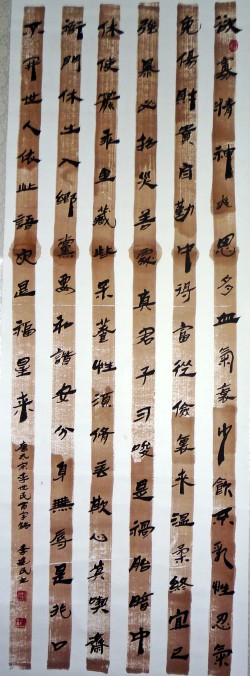 欲寡精神爽思多血氣衰少飲不乱性忍氣
免傷財貴自勤中得富從儉裏來温柔終宜己
強暴必招災善處真君子刁唆是禍胎暗中
休使箭乖里藏些呆養性須修善欺心莫喫齋
衙門休出入鄉黨要和諧安分身無辱是非口
不開世人依此語灾退福星來
唐太宗李世民百字銘